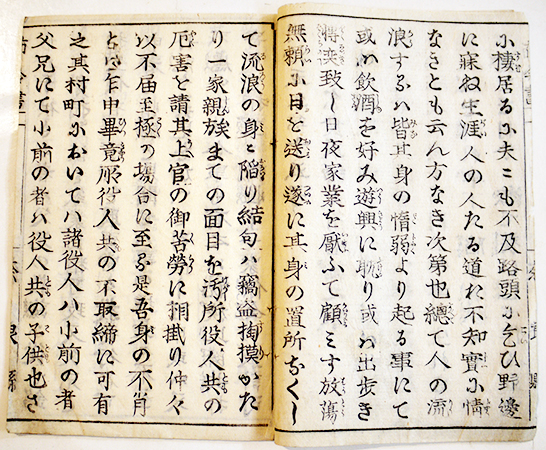 に棲居るに夫こも不及路頭に乞ひ野邊
に寐ね生涯人の人たる道に不知實に情
なきとも云ん方なき次第也總て人の流
浪するハ皆其身の惰弱より起る事にて
或ハ飲酒を好み遊興に耽り或ハ出歩き
博奕致し日夜家業を厭ふて顧ミす放蕩
無頼に日を送り遂に其身の置所なくし
て流浪の身に陥り結句ハ竊盗掏摸かた
り一家親族まての面目を汚所役人共の
厄害を請其上官の御苦勞に相掛り仲々
以不届至極の場合に至る是吾身の不肖
とハ乍申畢竟所役人共の不取締に可有
之其村町においてハ諸役人ハ小前の者
父兄にて小前の者ハ役人共の子供也さ